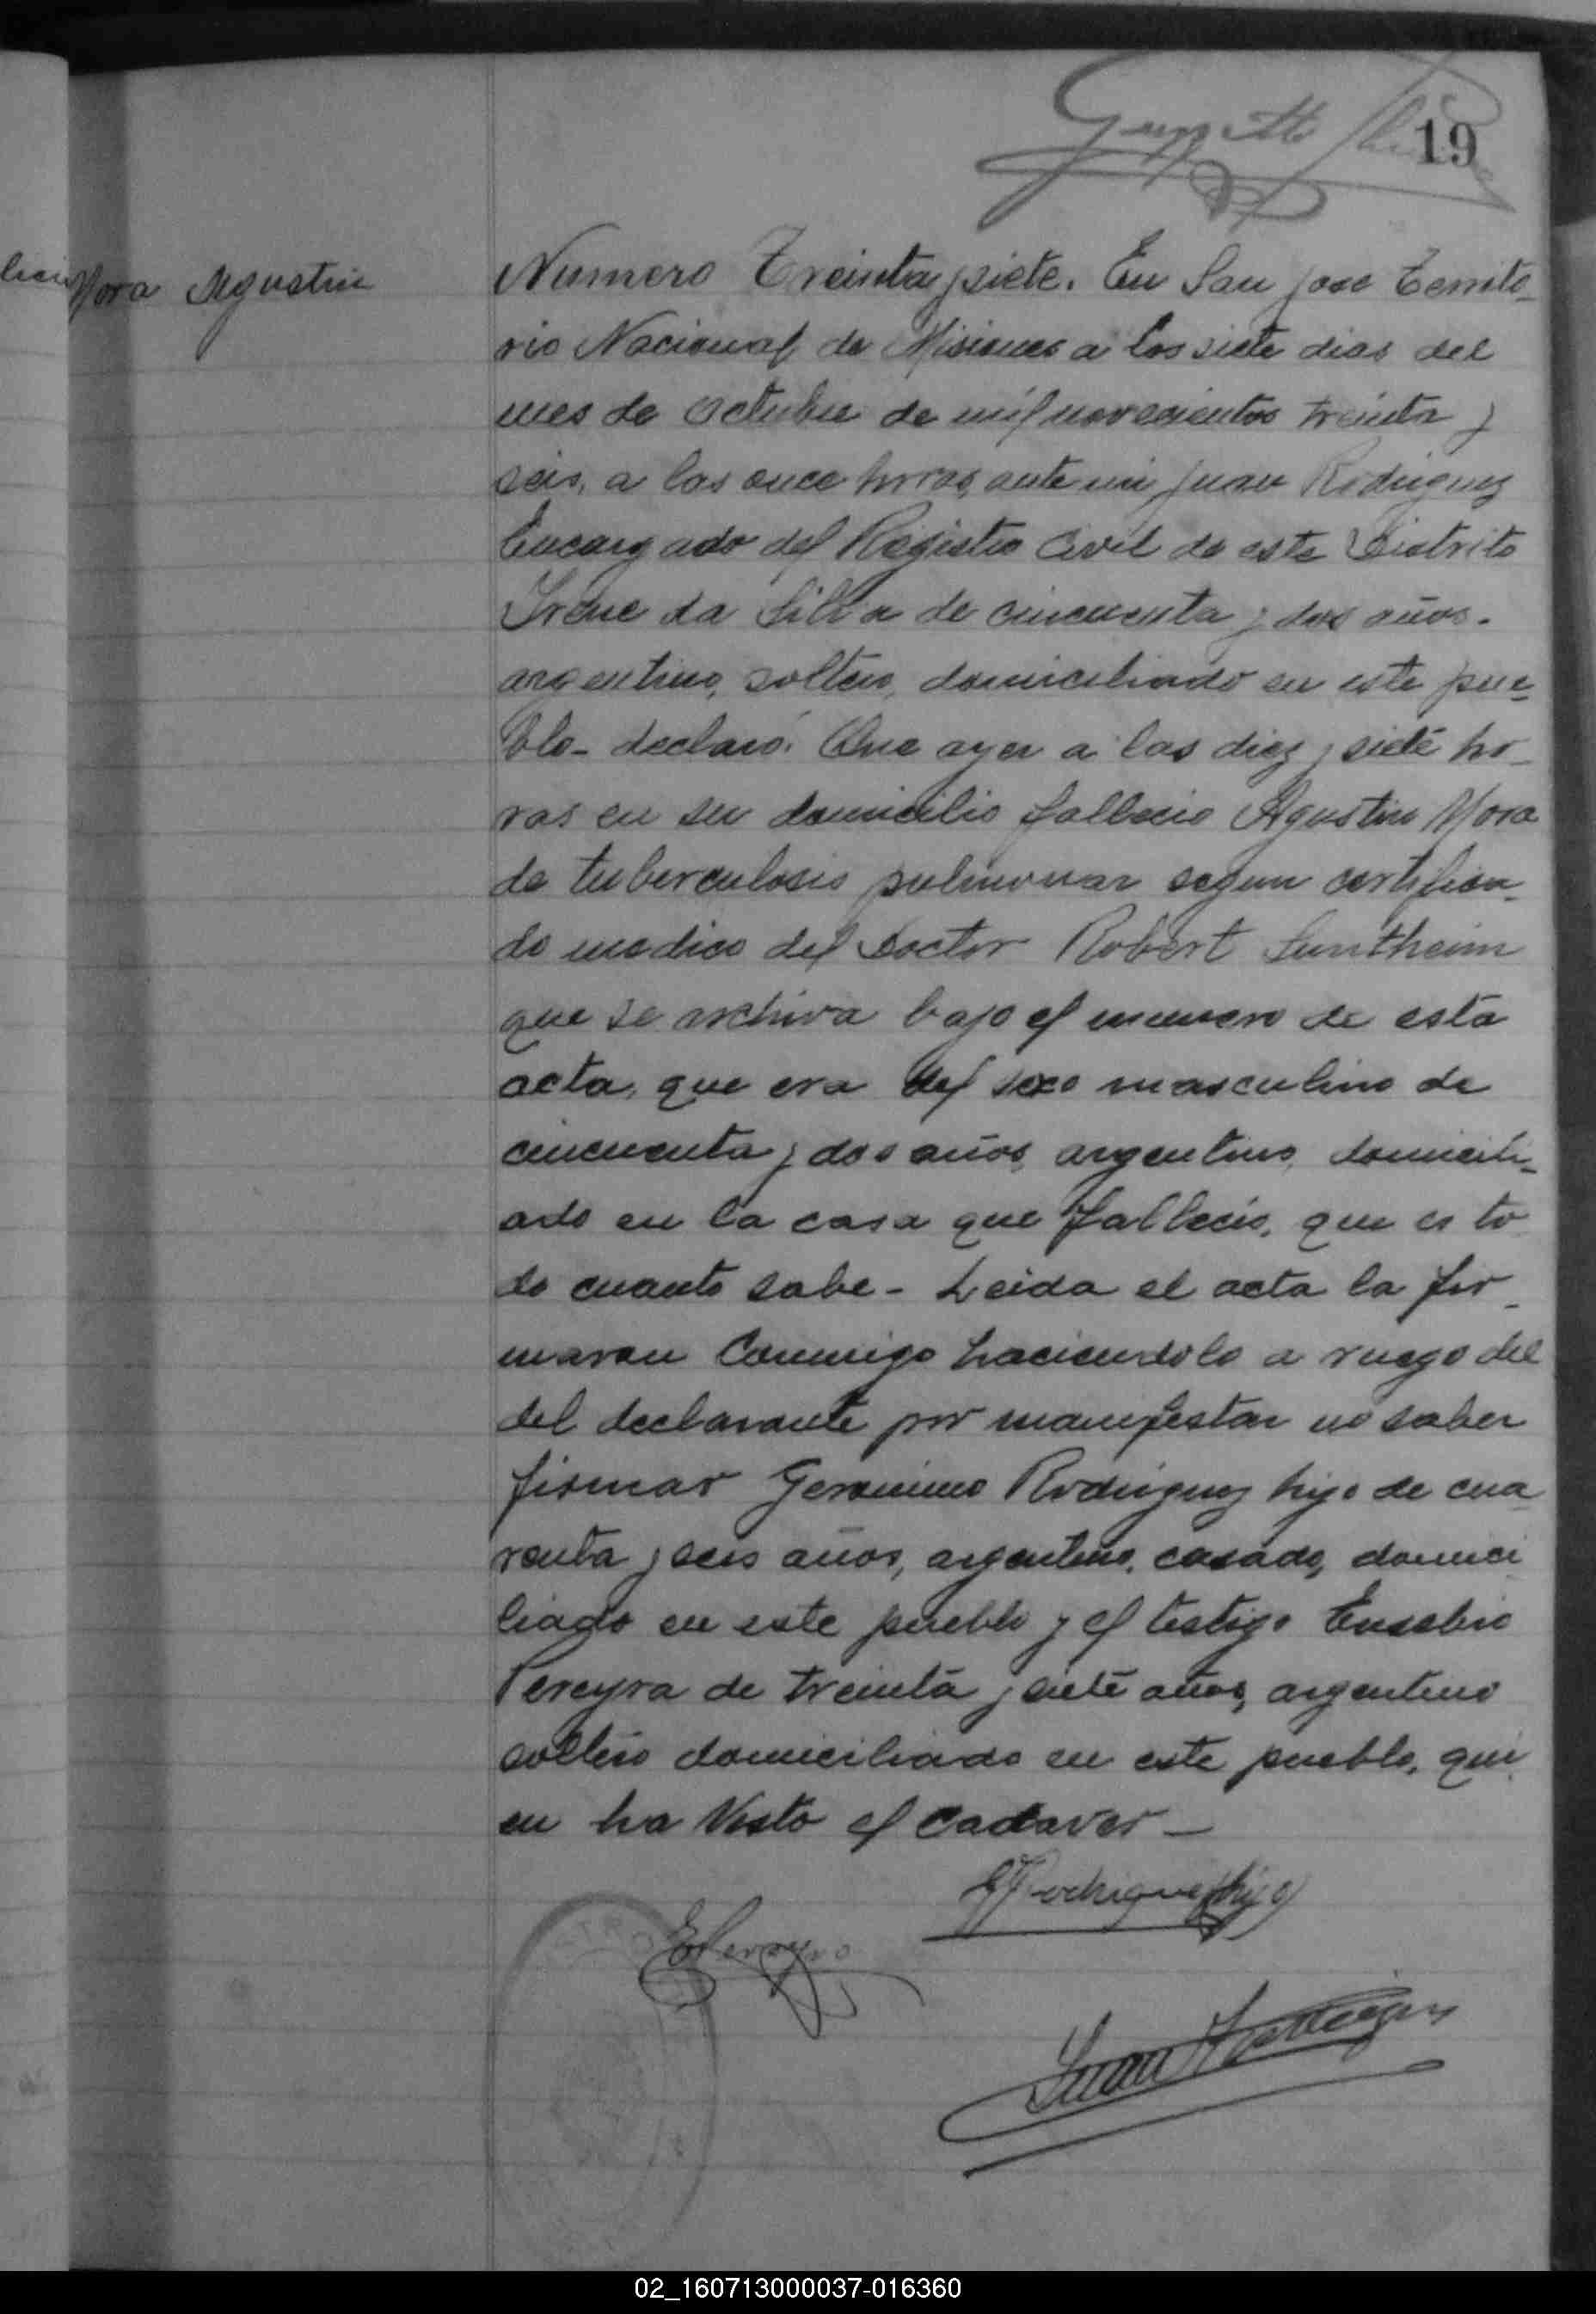 19
Mora Agustin
Numero Treinta y siete. En San Jose Territo-
rio Nacional de Misiones a los siete dias del
mes de Octubre de mil novecientos treinta y
seis, a las once horas, ante mi Juan Rodriguez
Encargado del Registro Civil de este Distrito
Irene da Silva de cincuenta y dos años.
argentino, soltero, domiciliado en este pue-
blo- declaró: Que ayer a las diez y siete ho-
ras en su domicilio fallecio Agustin Mora
de tuberculosis pulmonar segun certifica-
do medico del Doctor Robert Suntheim
que se archiva bajo el numero de esta
acta, que era del sexo masculino de
cincuenta y dos años, argentino, domicili-
ado en la casa que fallecio, que es to
do cuanto sabe- Leida el acta la fir-
maron Conmigo haciendolo a ruego del
del declarante por manifestar no saber
firmar Geronimo Rodriguez hijo de cua
renta y seis años, argentino, casado, domici
liado en este pueblo y el testigo Eusebio
Pereyra de treinta y siete años, argentino
soltero domiciliado en este pueblo, qui
en ha Visto el cadaver-
G Rodriguez (hijo)
E Pereyra
Juan Rodriguez
02_160713000037-016360